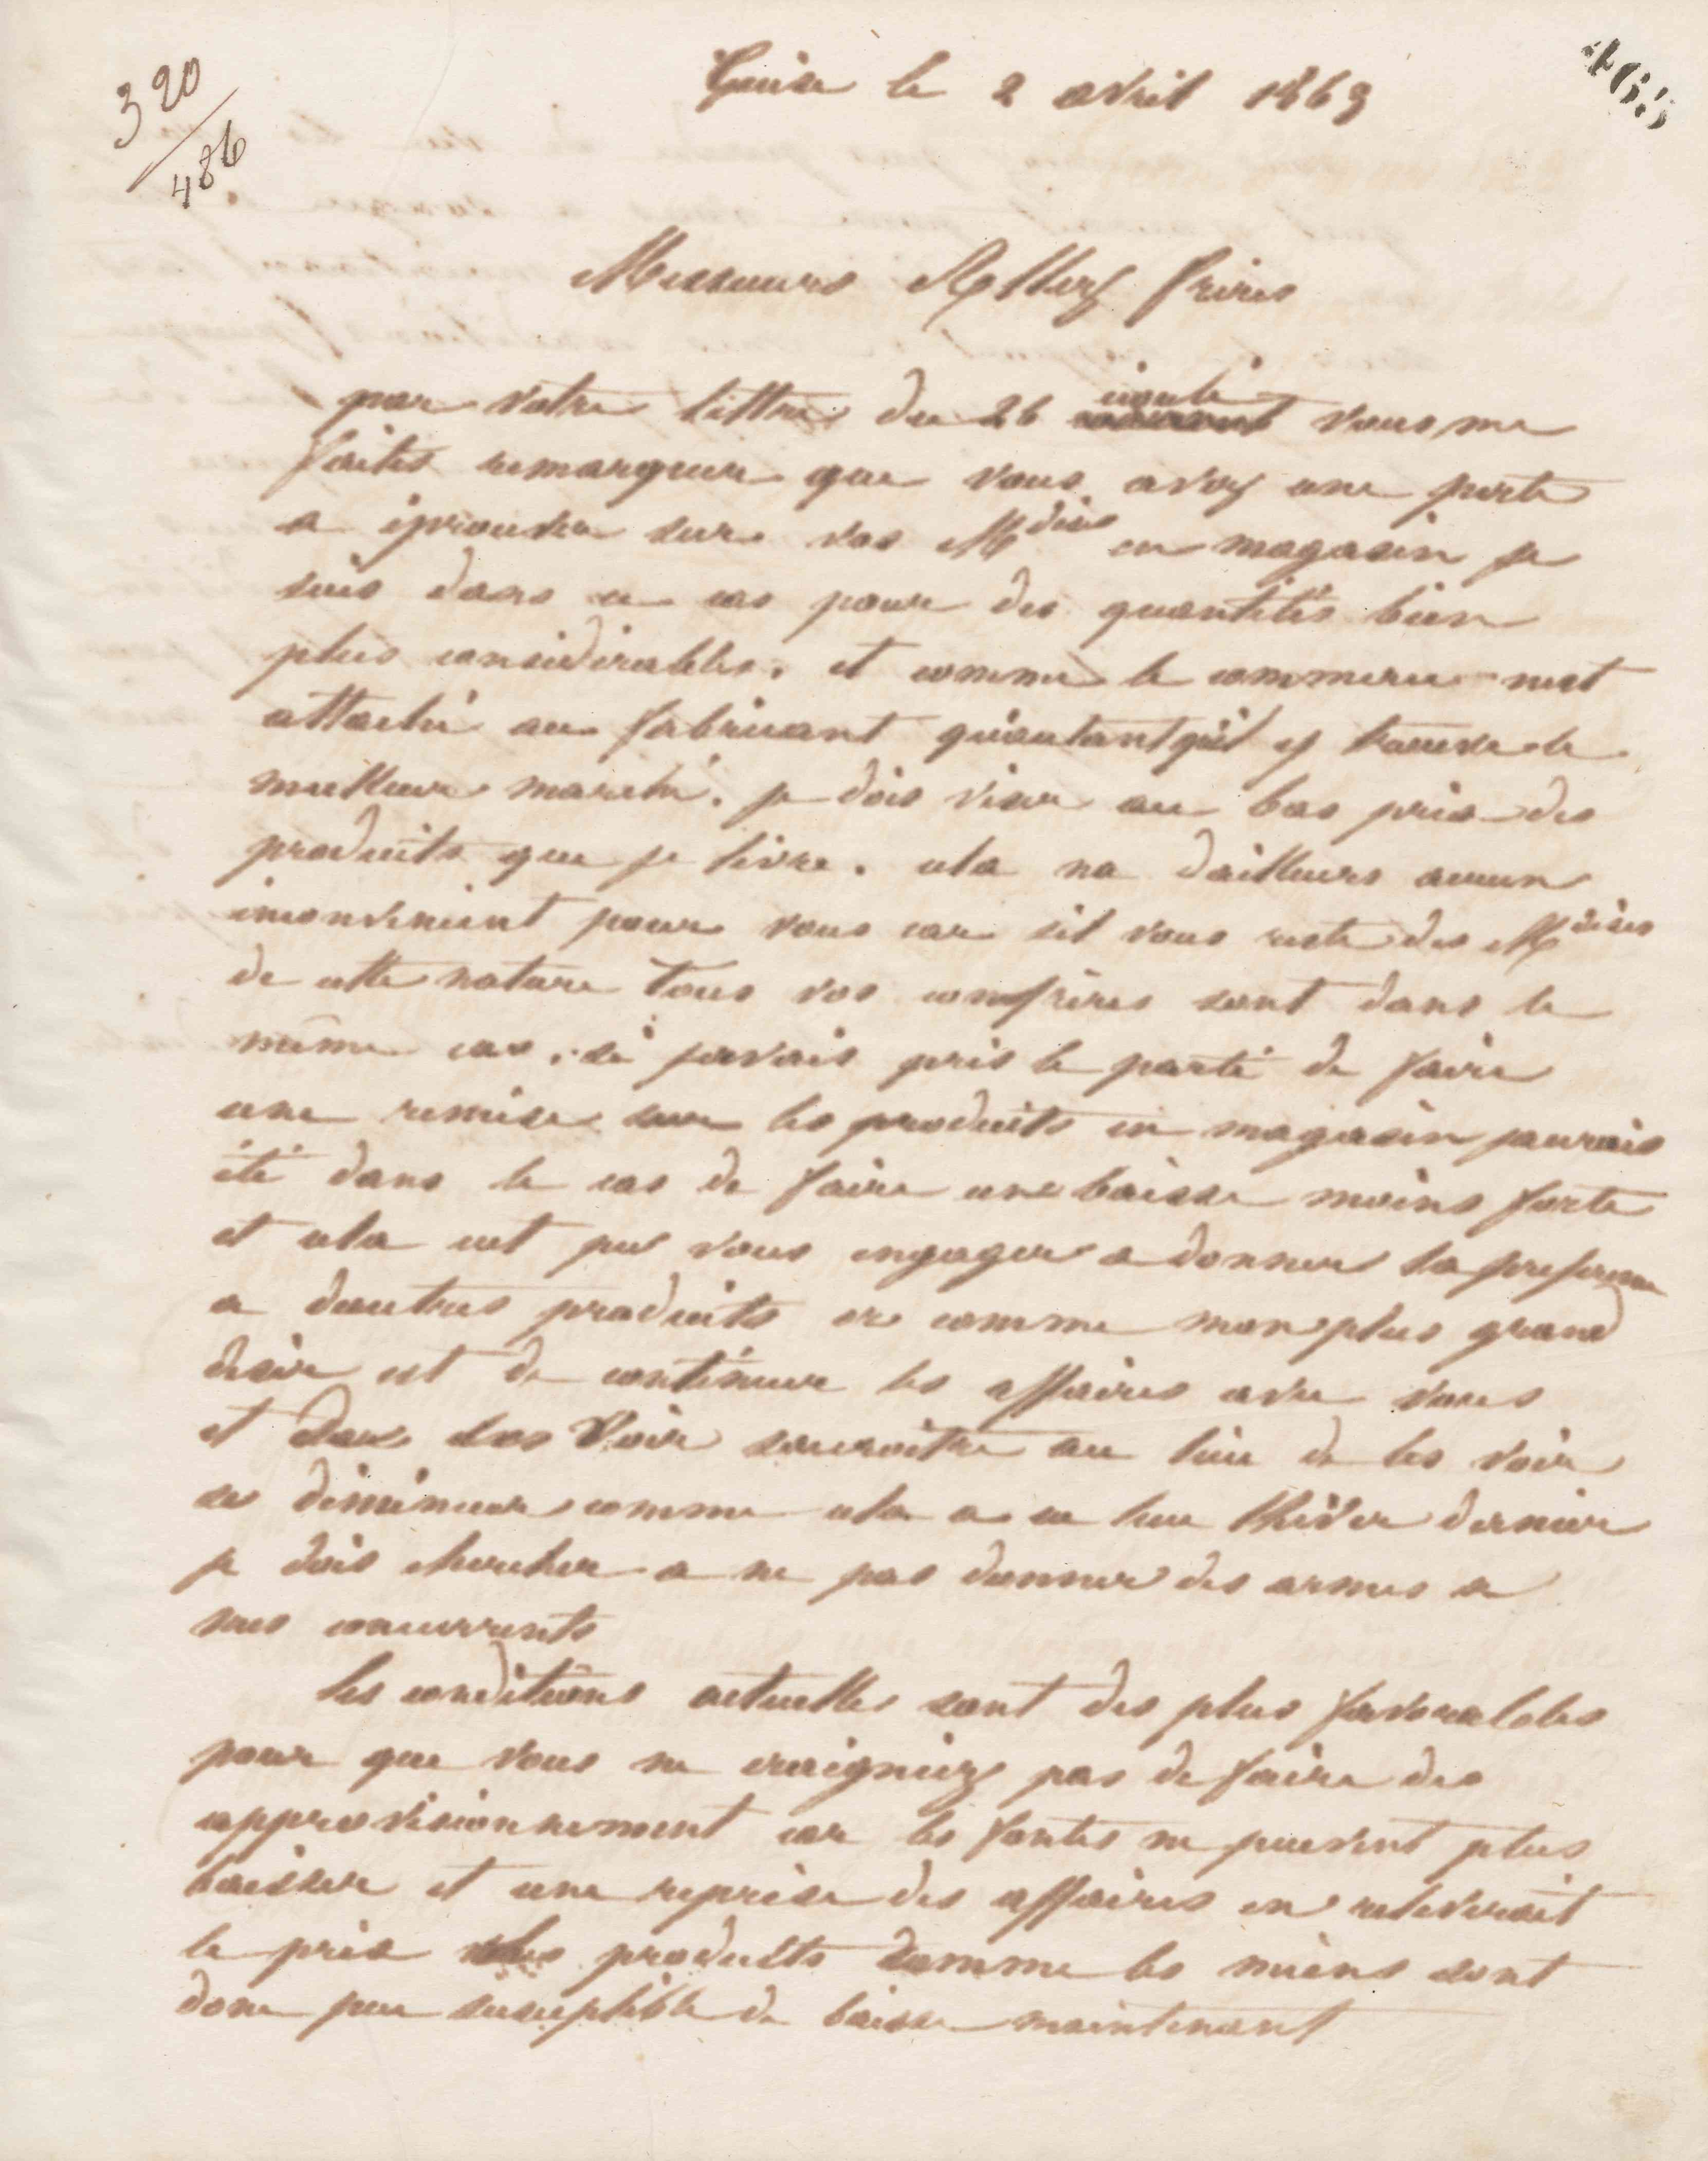 320
486
465
Guise le 2 avril 1863
Messieurs frères
par votre lettre du 26 écoulé vous me
faites remarquer que vous avez une perte
a éprouver sur vos Mdises en magasin je
suis dans ce cas pour des quantités bien
plus considérables. et comme le commerce nest
attaché au fabricant qu'autant qu'il y trouve le
meilleur marché. je dois viser au bas prix des
produits que je livre. cela na dailleurs aucun
inconvenient pour vous car sil vous reste des Mdises
de cette nature tous vos confrères sont dans le
même cas. si javais pris le parti de faire
une remise sur les produits en magasin jaurais
été dans le cas de faire une baisse moins forte
et cela eut pu vous engager a donner la preference
a dautres produits or comme mon plus grand
désir est de continuer les affaires avec vous
et voir accroitre au lieu de les voir
se diminuer comme cela a eu lieu lhiver dernier
je dois chercher a ne pas donner des armes a
mes concurrents
les conditions actuelles sont des plus favorables
pour que vous ne craigniez pas de faire des
approvisionnement car les fontes ne peuvent plus
baisser et une reprise des affaires en releverait
le prix les produits comme les miens sont
donc peu susceptible de baisse maintenant